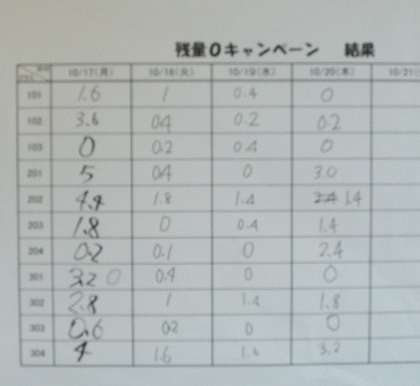 残量0キャンペーン 結果
10/17(月) 10/18(火) 10/19(水) 10/20(木) 10/21
101 1.6 1 0.4 0
102 3.6 0.4 0.2 0.2
103 0 0.2 0.4 0
201 5 0.4 0 3.0
202 4.4 1.8 1.4 1.4
203 1.8 0 0.4 1.4
204 0.2 0.1 0 2.4
301 3.2 0 0.4 0 0
302 2.8 1 1.4 1.8
303 0.6 0.2 0 0
304 4 1.6 3.2